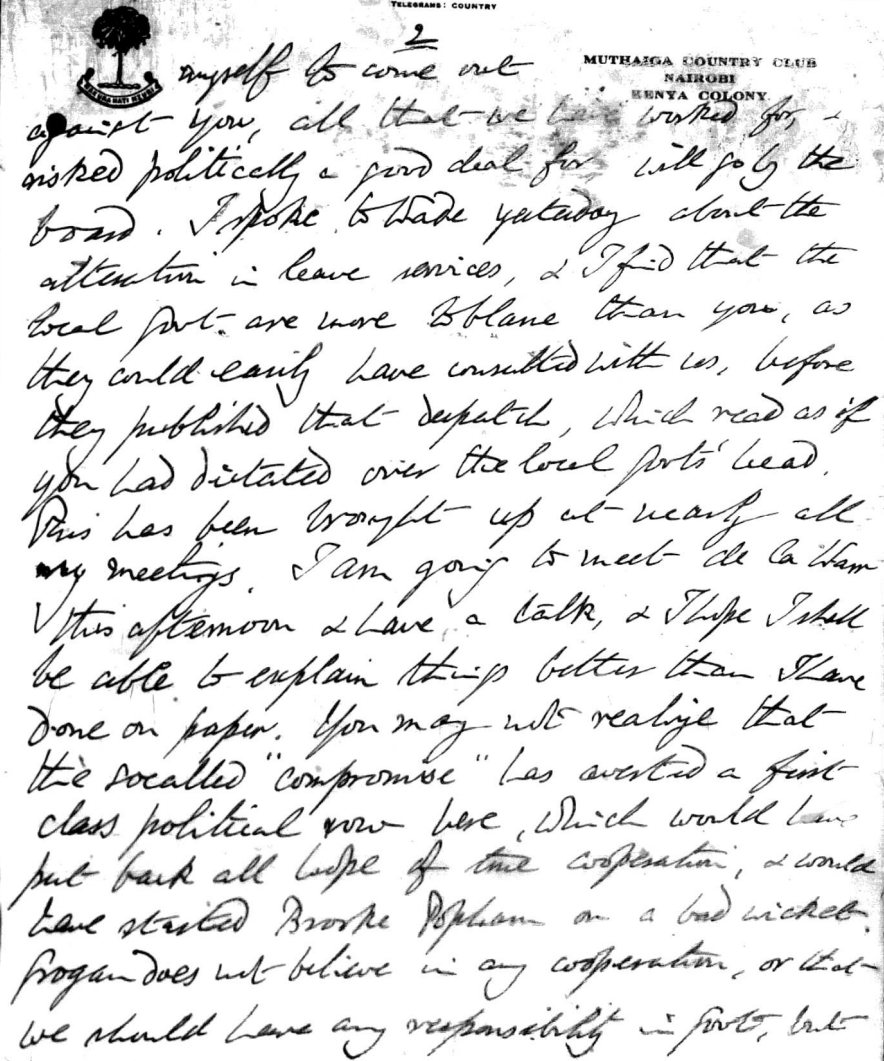 TELEGRAMS: COUNTRY
2
MUTHAIGA COUNTRY CLUB
NAIROBI
KENYA COLONY.
myself to come out
against you, all that we have worked for, &
risked politically a good deal for will go by the
board. I spoke to Wade yesterday about the
alteration in leave services, & I find that the
local Govt. are more to blame than you, as
they could easily have consulted with us, before
they published that despatch, which read as if
you had dictated over the local Govts' head.
This has been brought up at nearly all
my meetings. I am going to meet de la Warr
this afternoon & have a talk, & I hope I shall
be able to explain things better than I have
done on paper. You may not realize that
the socalled "compromise" has averted a first
class political row here, which would have
put back all hope of true cooperation, & would
have started Brooke Popham on a bad wicket.
Grogan does not believe in any cooperation, or that
we should have any responsibility in Govt, but